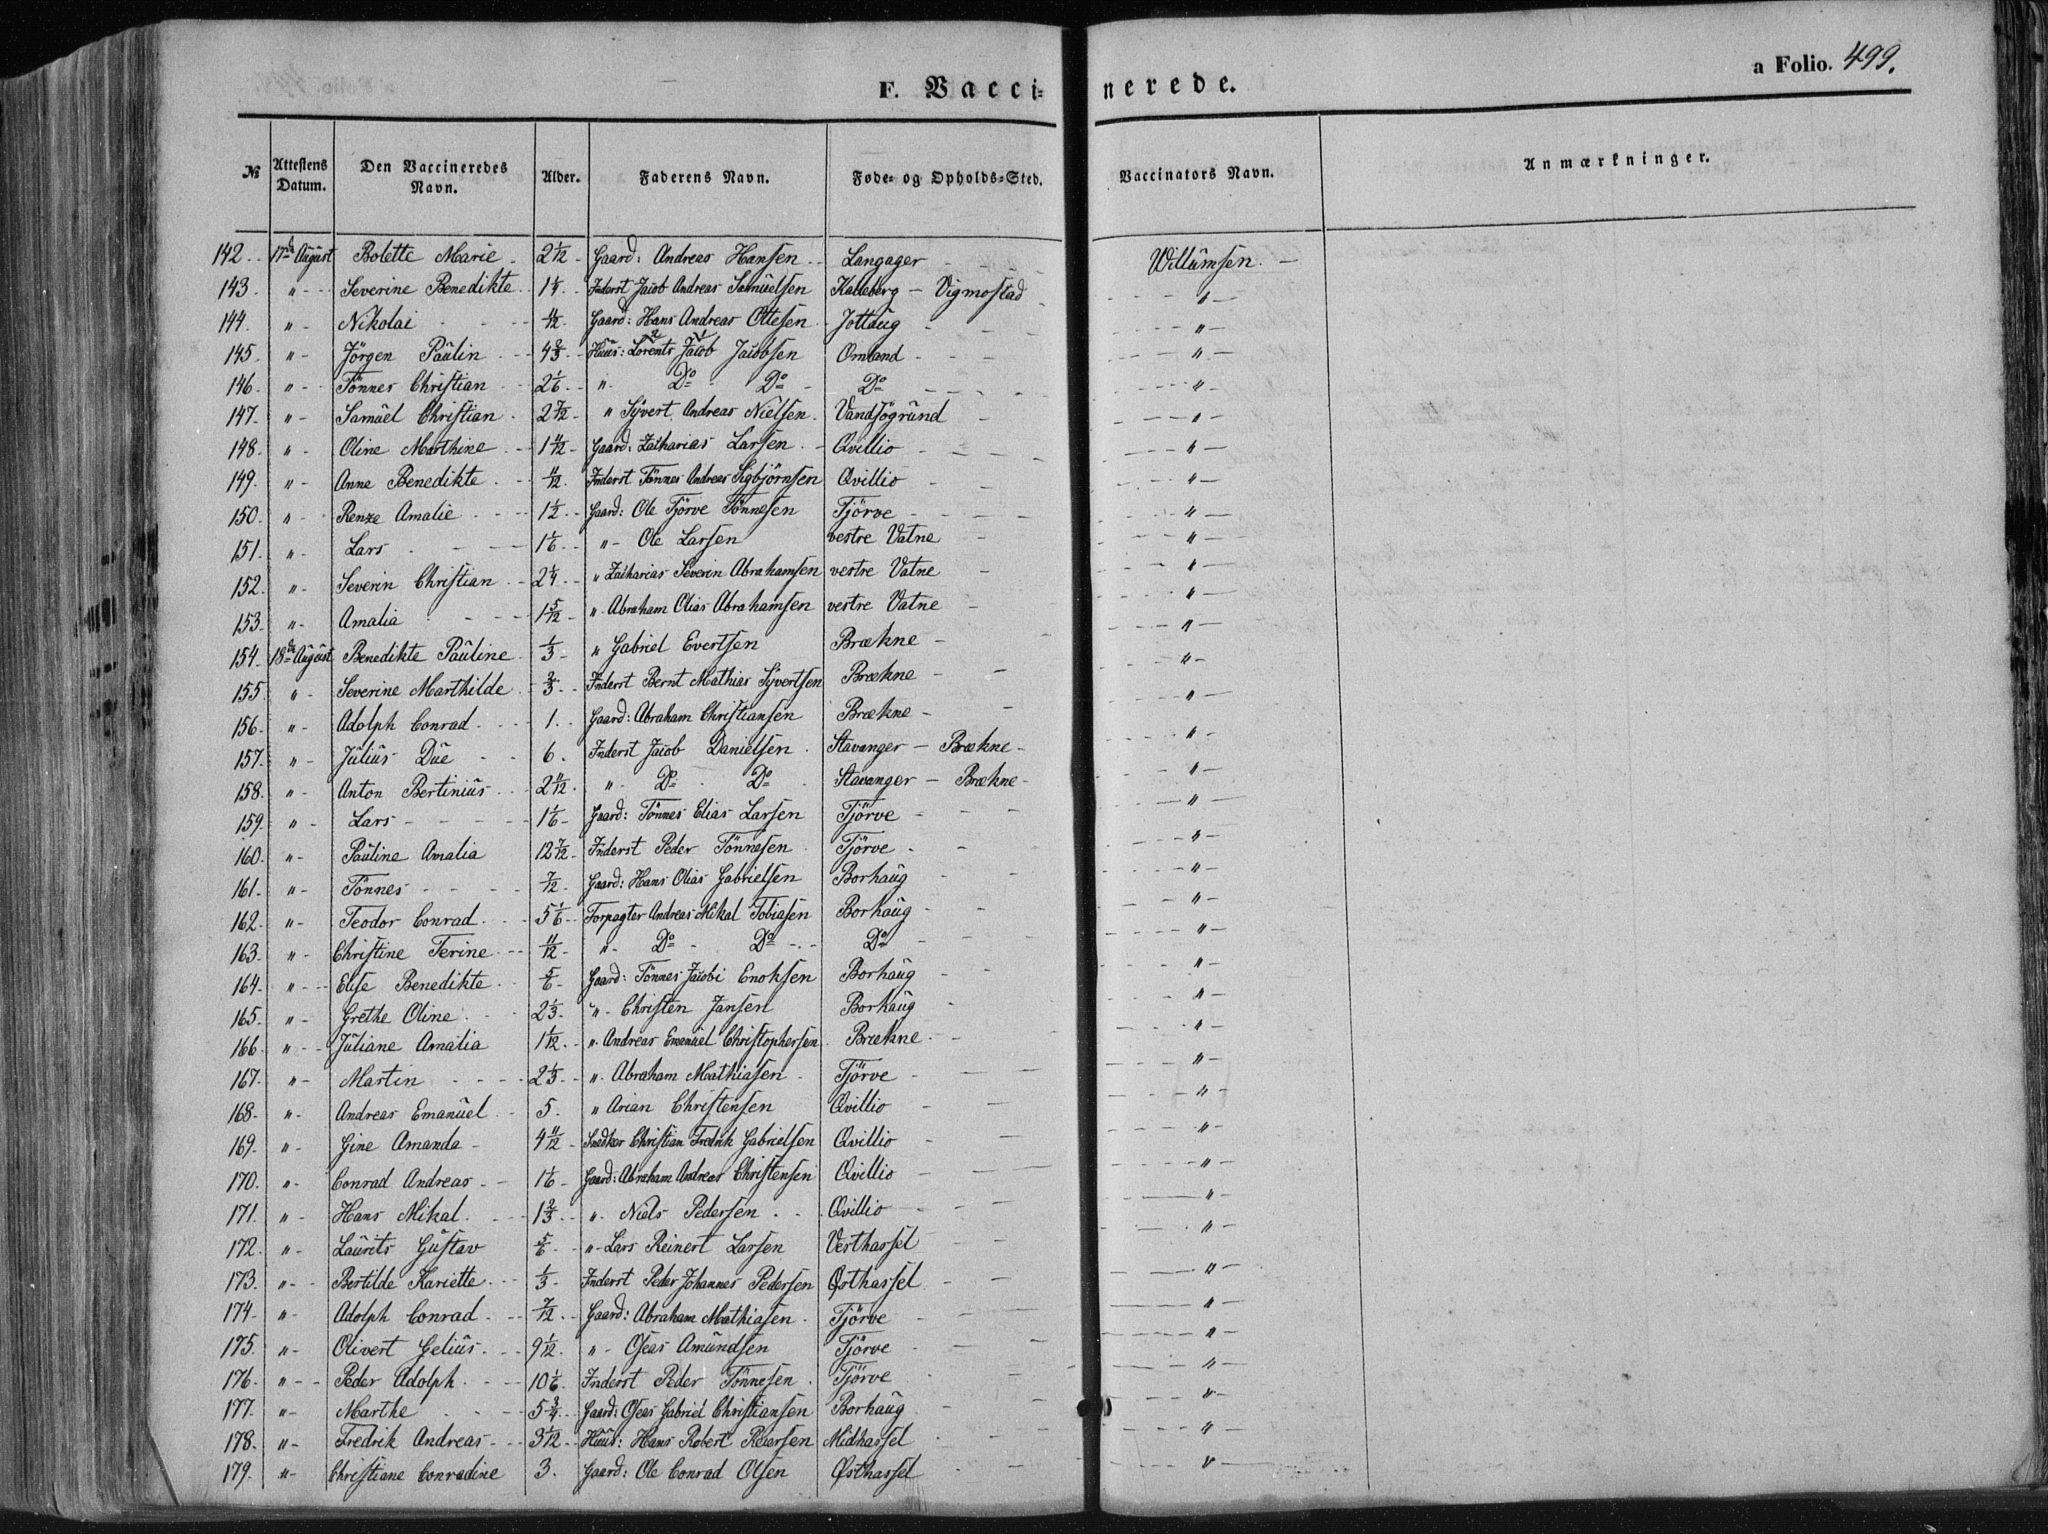 a Folio. 499.
F. Vacci- nerede.
№ Attestens Datum. Den Vaccineredes Navn. Alder. Faderens Navn. Føde- og Opholds-Sted. Vaccinators Navn. Anmærkninger.
142. 17de August Bolette Marie 2 1/12 Gaard: Andreas Hansen Langager Willumsen.
143. " Severine Benedikte 1 1/4 Inderst Jacob Andreas Samuelsen Kalleberg - Vigmostad "
144. " Nikolai Gaard: Hans Andreas Ottesen Jottaug "
145. " Jörgen Paulin 4 2/3 Huus: Lorents Jacob Jacobsen Omland "
146. " Tönnes Christian 2 1/6 " Do Do Do "
147. " Samuel Christian 2 7/12 " Syvert Andreas Nielsen Vandsögrund "
148. " Oline Marthine 1 11/12 Gaard: Zacharias Larsen Qvillio "
149. " Anne Benedikte 11/12 Inderst Tönnes Andreas Sigbjörnsen Qvillio "
150. " Renze Amalie 1 1/2 Gaard: Ole Tjörve Tönnesen Tjörve "
151. " Lars 1 1/6 " Ole Larsen vestre Vatne "
152. " Severin Christian 2 1/4 " Zacharias Severin Abrahamsen vestre Vatne "
153. " Amalia 1 5/12 " Abraham Olias Abrahamsen vestre Vatne "
154. 18de August Benedikte Pauline 1/3 " Gabriel Evertsen Brækne "
155. " Severine Marthilde 2/3 Inderst Bernt Mathias Syvertsen Brækne "
156. " Adolph Conrad 1. Gaard: Abraham Christiansen Brækne "
157. " Julius Due 6. Inderst Jacob Danielsen Stavanger - Brækne "
158. " Anton Bertinius 2 11/12 " Do Do Stavanger - Brækne "
159. " Lars 1 1/6 Gaard: Tönnes Elias Larsen Tjörve "
160. " Pauline Amalia 12 7/12 Inderst Peder Tönnesen Tjörve "
161. " Tönnes 7/12 Gaard: Hans Olias Gabrielsen Borhaug "
162. " Teodor Conrad 5 1/6 Forpagter Andreas Mikal Tobiasen Borhaug "
163. " Christine Terine 11/12 " Do Do Do "
164. " Elise Benedikte 5/6 Gaard: Tönnes Jacobi Enoksen Borhaug "
165. " Grethe Oline 2 1/3 " Christen Jansen Borhaug "
166. " Juliane Amalia 1 1/12 " Andreas Emanuel Christophersen Brækne "
167. " Martin 2 1/3 " Abraham Mathiasen Tjörve "
168. " Andreas Emanuel 5. " Arian Christensen Qvillio "
169. " Gine Amanda 4 11/12 Snedker Christian Fredrik Gabrielsen Qvillio "
170. " Conrad Andreas 1 1/6 Gaard: Abraham Andreas Christensen Qvillio "
171. " Hans Mikal 1 2/3 " Niels Pedersen Qvillio "
172. " Laurits Gustav 5/6 " Lars Reinert Larsen Vesthassel "
173. " Bertilde Kariette 1/3 Inderst Peder Johannes Pedersen Østhassel "
174. " Adolph Conrad 7/12 Gaard: Abraham Mathiasen Tjörve "
175. " Olivert Gelius 9 1/12 " Oseas Amundsen Tjörve "
176. " Peder Adolph 10 1/6 Inderst Peder Tönnesen Tjörve "
177. " Marthe 5 3/4 Gaard: Oseas Gabriel Christiansen Borhaug "
178. " Fredrik Andreas 3 1/12 Huus: Hans Robert Reiersen Midhassel "
179. " Christiane Conradine 3. Gaard: Ole Conrad Olsen Østhassel "